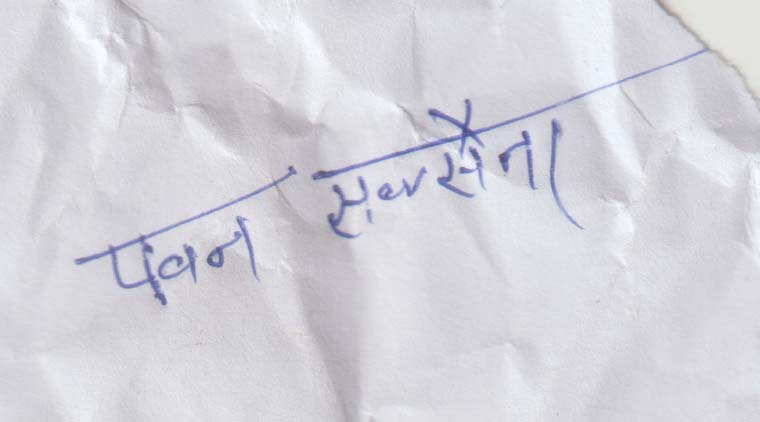 पवन सक्सैना